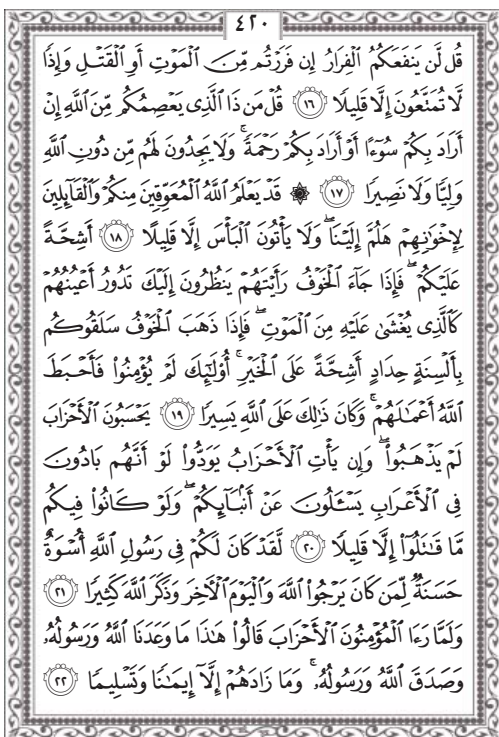 ٤٢٠
قُل لَّن يَنفَعَكُمُ ٱلْفِرَارُ إِن فَرَرْتُم مِّنَ ٱلْمَوْتِ أَوِ ٱلْقَتْلِ وَإِذًا
لَّا تُمَتَّعُونَ إِلَّا قَلِيلًا ١٦ قُلْ مَن ذَا ٱلَّذِى يَعْصِمُكُم مِّنَ ٱللَّهِ إِنْ
أَرَادَ بِكُمْ سُوٓءًا أَوْ أَرَادَ بِكُمْ رَحْمَةً ۚ وَلَا يَجِدُونَ لَهُم مِّن دُونِ ٱللَّهِ
وَلِيًّا وَلَا نَصِيرًا ١٧ ۞ قَدْ يَعْلَمُ ٱللَّهُ ٱلْمُعَوِّقِينَ مِنكُمْ وَٱلْقَآئِلِينَ
لِإِخْوَٰنِهِمْ هَلُمَّ إِلَيْنَا ۖ وَلَا يَأْتُونَ ٱلْبَأْسَ إِلَّا قَلِيلًا ١٨ أَشِحَّةً
عَلَيْكُمْ ۖ فَإِذَا جَآءَ ٱلْخَوْفُ رَأَيْتَهُمْ يَنظُرُونَ إِلَيْكَ تَدُورُ أَعْيُنُهُمْ
كَٱلَّذِى يُغْشَىٰ عَلَيْهِ مِنَ ٱلْمَوْتِ ۖ فَإِذَا ذَهَبَ ٱلْخَوْفُ سَلَقُوكُم
بِأَلْسِنَةٍ حِدَادٍ أَشِحَّةً عَلَى ٱلْخَيْرِ ۚ أُو۟لَٰٓئِكَ لَمْ يُؤْمِنُوا۟ فَأَحْبَطَ
ٱللَّهُ أَعْمَٰلَهُمْ ۚ وَكَانَ ذَٰلِكَ عَلَى ٱللَّهِ يَسِيرًا ١٩ يَحْسَبُونَ ٱلْأَحْزَابَ
لَمْ يَذْهَبُوا۟ ۖ وَإِن يَأْتِ ٱلْأَحْزَابُ يَوَدُّوا۟ لَوْ أَنَّهُم بَادُونَ
فِى ٱلْأَعْرَابِ يَسْـَٔلُونَ عَنْ أَنۢبَآئِكُمْ ۖ وَلَوْ كَانُوا۟ فِيكُم
مَّا قَٰتَلُوٓا۟ إِلَّا قَلِيلًا ٢٠ لَّقَدْ كَانَ لَكُمْ فِى رَسُولِ ٱللَّهِ أُسْوَةٌ
حَسَنَةٌ لِّمَن كَانَ يَرْجُوا۟ ٱللَّهَ وَٱلْيَوْمَ ٱلْءَاخِرَ وَذَكَرَ ٱللَّهَ كَثِيرًا ٢١
وَلَمَّا رَءَا ٱلْمُؤْمِنُونَ ٱلْأَحْزَابَ قَالُوا۟ هَٰذَا مَا وَعَدَنَا ٱللَّهُ وَرَسُولُهُۥ
وَصَدَقَ ٱللَّهُ وَرَسُولُهُۥ ۚ وَمَا زَادَهُمْ إِلَّآ إِيمَٰنًا وَتَسْلِيمًا ٢٢